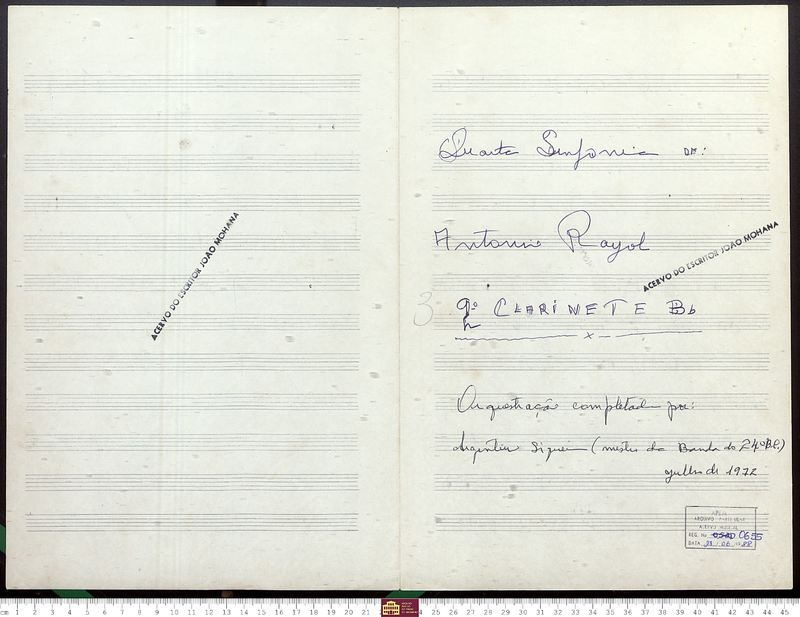 ACERVO DO ESCRITOR JOÃO MOHANA
Quarta Sinfonia DE:
Antonio Rayol
ACERVO DO ESCRITOR JOÃO MOHANA
3
CLARINETE Bb
x
Orquestração completada por:
(mestre da Banda do 24º BC)
julho de 1972
ACERVO MUSICAL
REG. No 0655
DATA
cm 1 2 3 4 5 6 7 8 9 10 11 12 13 14 15 16 17 18 19 20 21 24 25 26 27 28 29 30 31 32 33 34 35 36 37 38 39 40 41 42 43 44 45